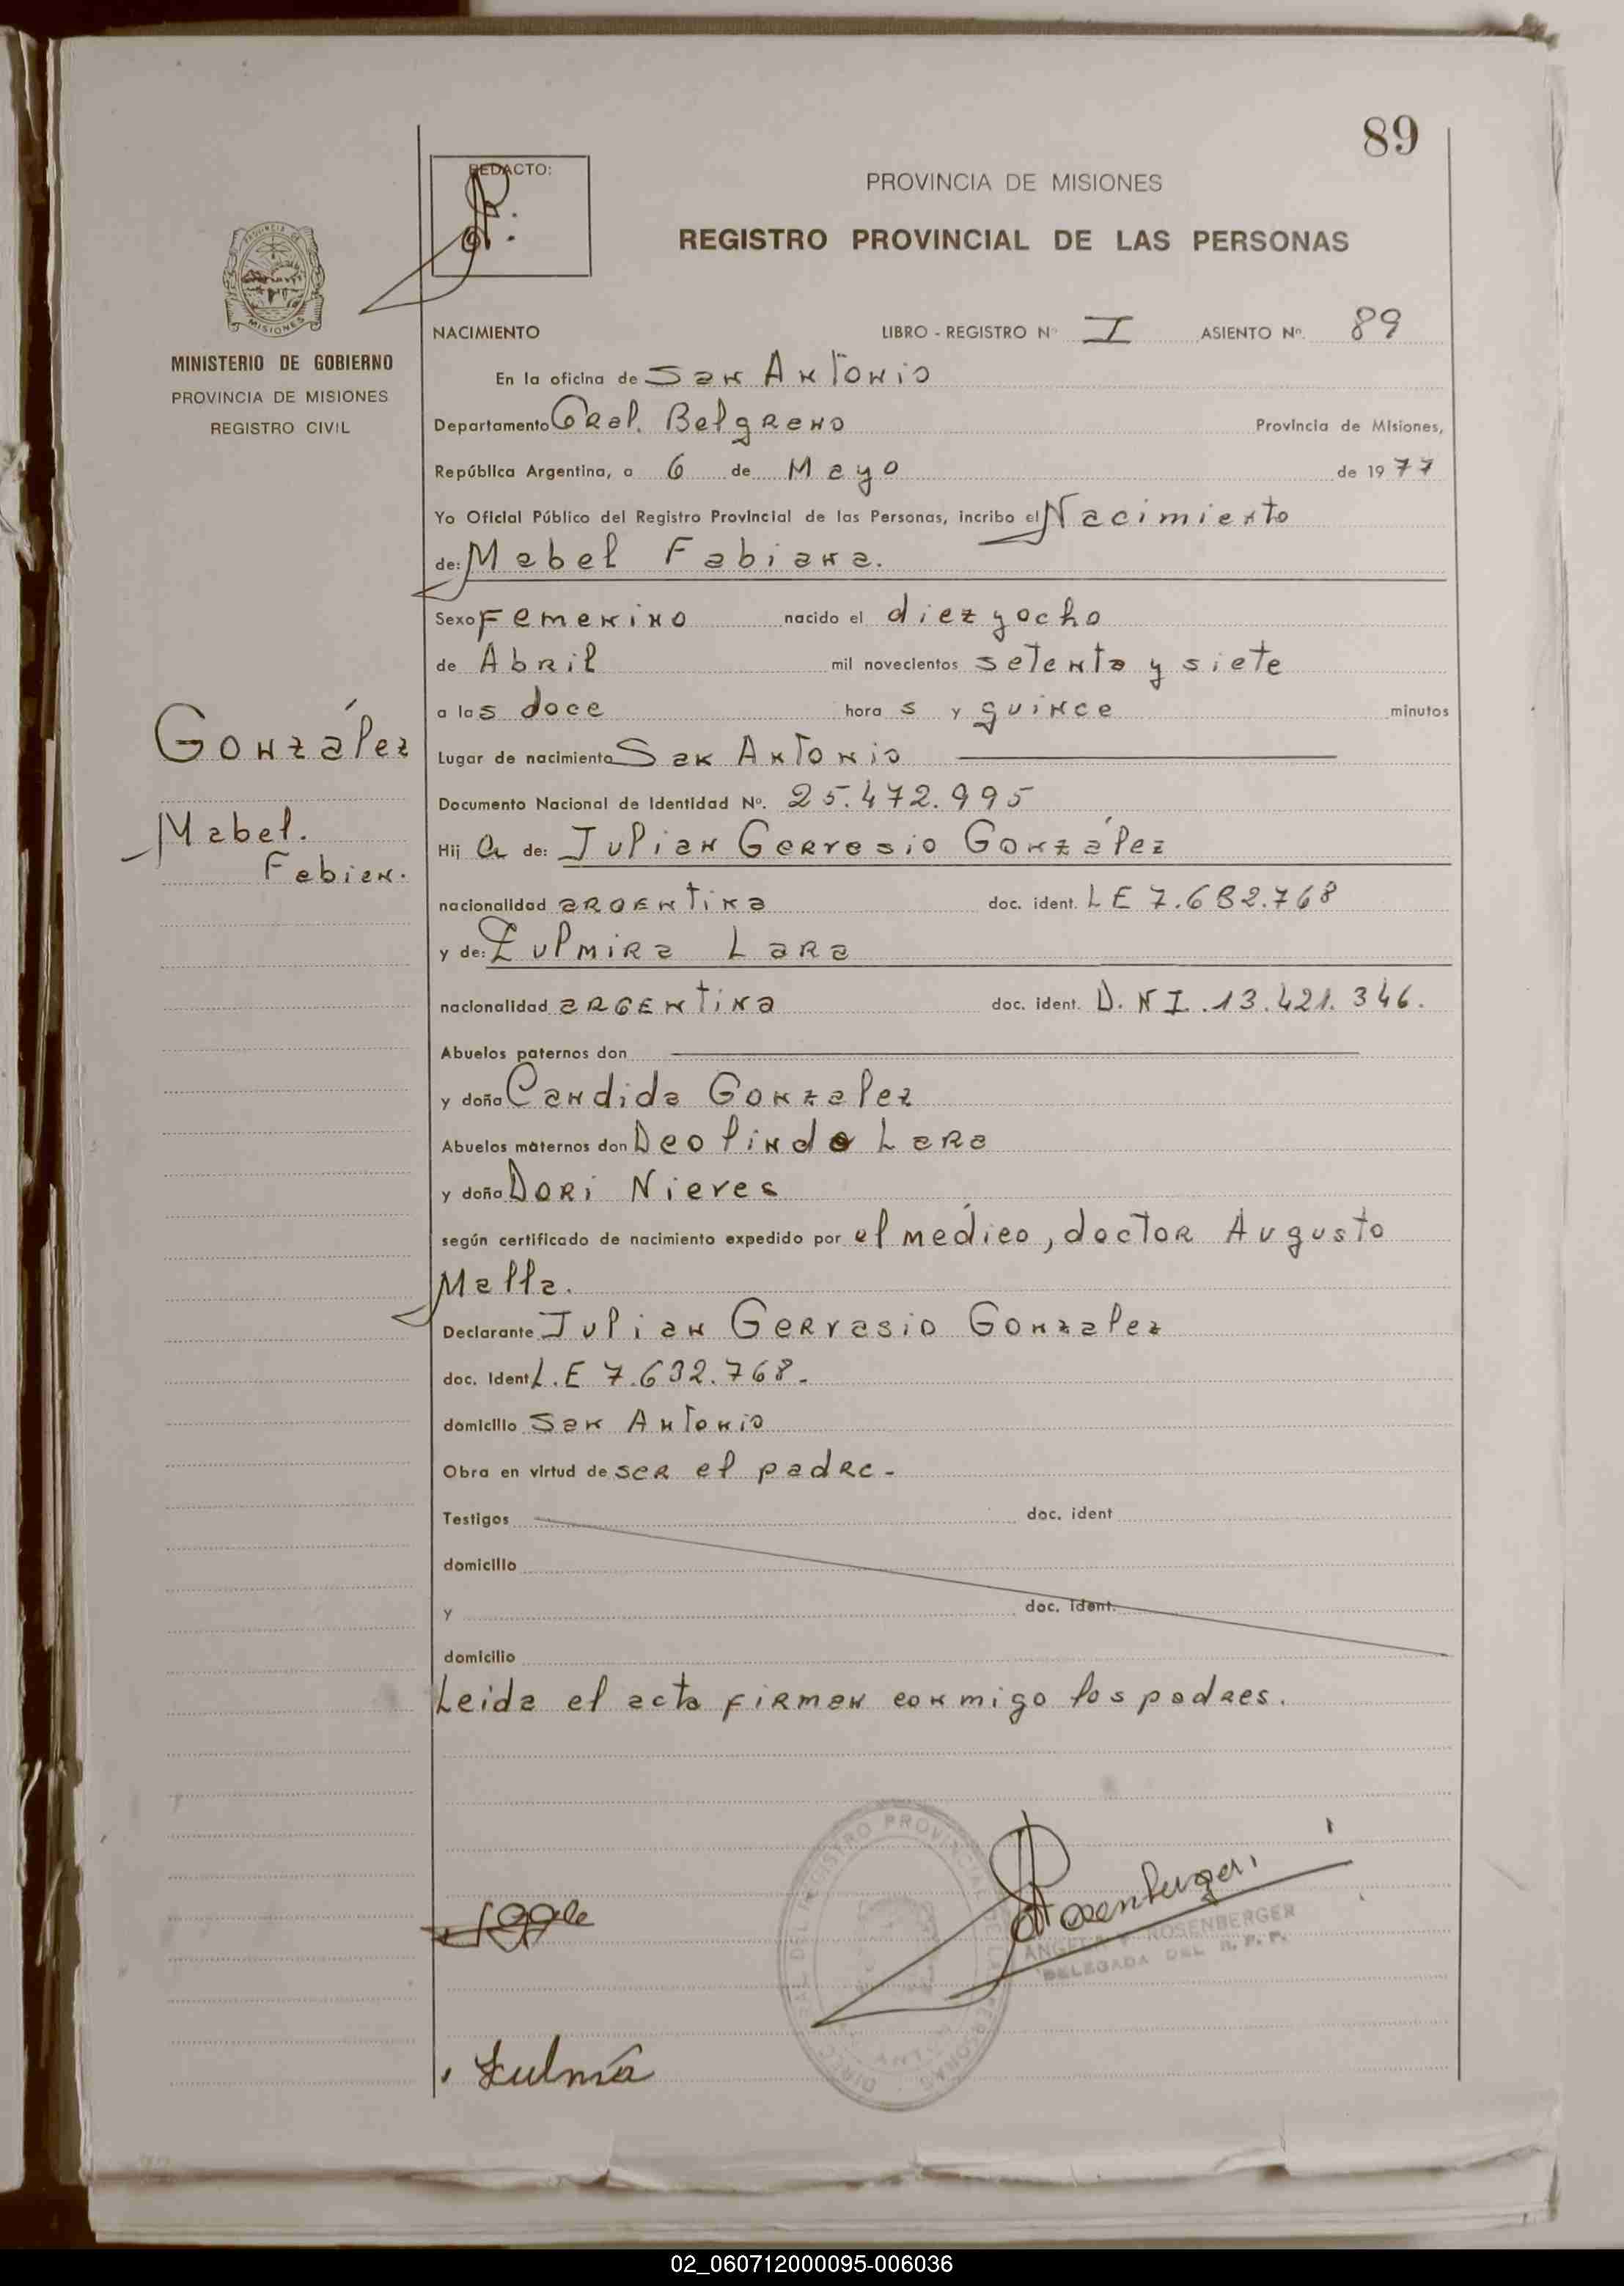 89
REDACTO:
PROVINCIA DE MISIONES
REGISTRO PROVINCIAL DE LAS PERSONAS
MISIONES
MINISTERIO DE GOBIERNO
PROVINCIA DE MISIONES
REGISTRO CIVIL
NACIMIENTO LIBRO - REGISTRO Nº I ASIENTO Nº. 89
En la oficina de San Antonio
Departamento Gral. Belgrano Provincia de Misiones,
República Argentina, a 6 de Mayo de 1977
Yo Oficial Público del Registro Provincial de las Personas, incribo el Nacimiento
de: Mabel Fabiana.
Sexo Femenino nacido el diez y ocho
de Abril mil novecientos setenta y siete
a las doce horas y quince minutos
González
Mabel.
Fabian.
Lugar de nacimiento San Antonio
Documento Nacional de Identidad Nº. 25.472.995
Hija de: Julian Gervasio González
nacionalidad argentina doc. ident. LE 7.632.768
y de: Zulmira Lara
nacionalidad argentina doc. ident. D.N.I. 13.421.346.
Abuelos paternos don
y doña Candida Gonzalez
Abuelos maternos don Deolindo Lara
y doña Dori Nieves
según certificado de nacimiento expedido por el médico, doctor Augusto
Malla.
Declarante Julian Gervasio Gonzalez
doc. Ident L.E 7.632.768.
domicilio San Antonio
Obra en virtud de ser el padre.
Testigos doc. ident
domicilio
y doc. ident.
domicilio
Leida el acta firman conmigo los padres.
Rosenberger
ROSENBERGER
DELEGADA DEL R. P. P.
Zulmira
02_060712000095-006036